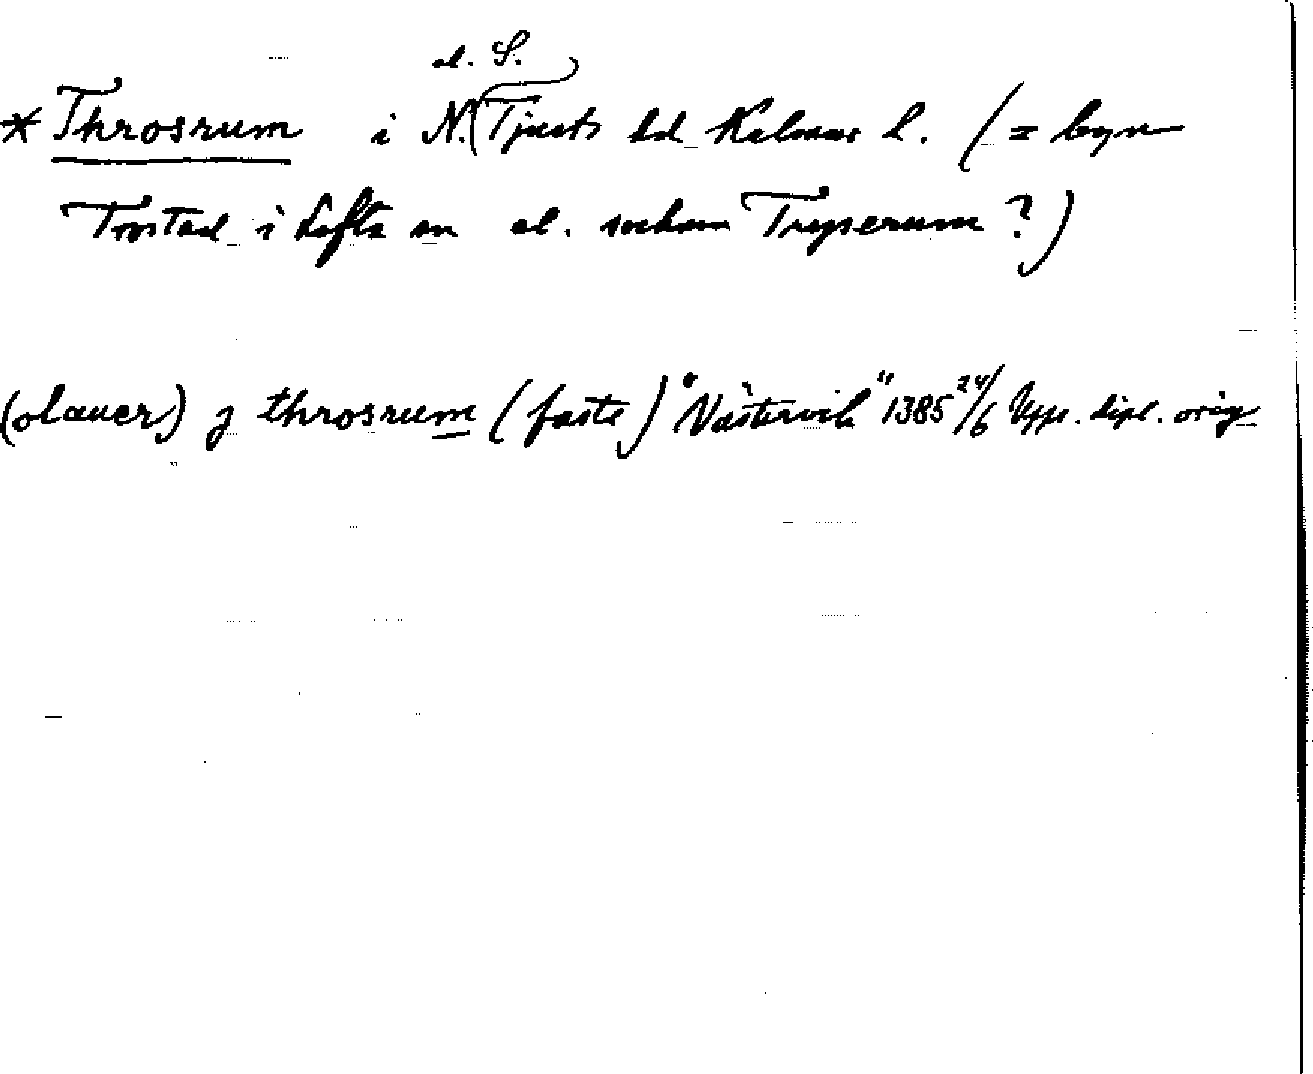 el. S.
* Throsrum i N. Tjusts hd Kalmar l. (= byn
Trostad i Lofta sn el. socknen Tryserum?)
(olauer) j throsrum (faste) "Västervik" 1385 24/6 Upps. dipl. orig